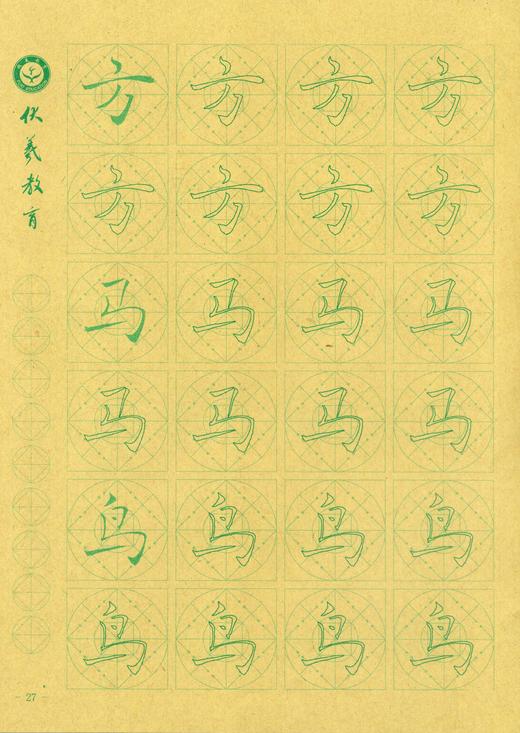 伏羲教育
方方方方
方方方方
马马马马
马马马马
鸟鸟鸟鸟
鸟鸟鸟鸟
- 27 -